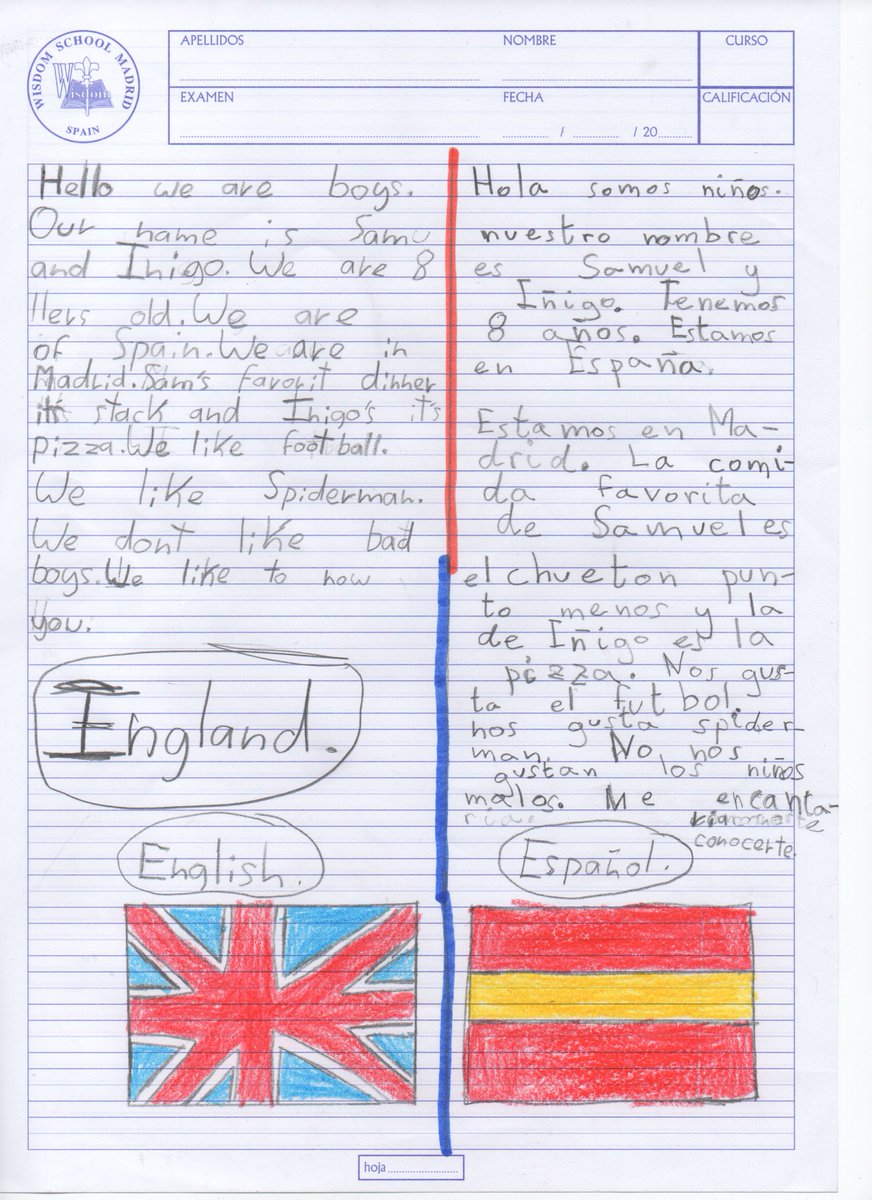 WISDOM SCHOOL MADRID
Wisdom
SPAIN
APELLIDOS
NOMBRE
CURSO
EXAMEN
FECHA
/ / 20
CALIFICACIÓN
Hello we are boys.
Our name is Samu
and Inigo. We are 8
llers old. We are
of Spain. We are in
Madrid. Sam's favorit dinner
it's stack and Inigo's it's
pizza. We like football.
We like Spiderman.
We dont like bad
boys. We like to now
you.
England.
English.
Hola somos niños.
nuestro nombre
es Samuel y
Iñigo. Tenemos
8 años. Estamos
en España.
Estamos en Ma-
drid. La comi-
da favorita
de Samuel es
el chueton pun-
to menos y la
de Iñigo es la
pizza. Nos gus-
ta el futbol.
nos gusta spider-
man. No nos
gustan los niños
malos. Me encanta-
ria
conocerte.
Español.
hoja